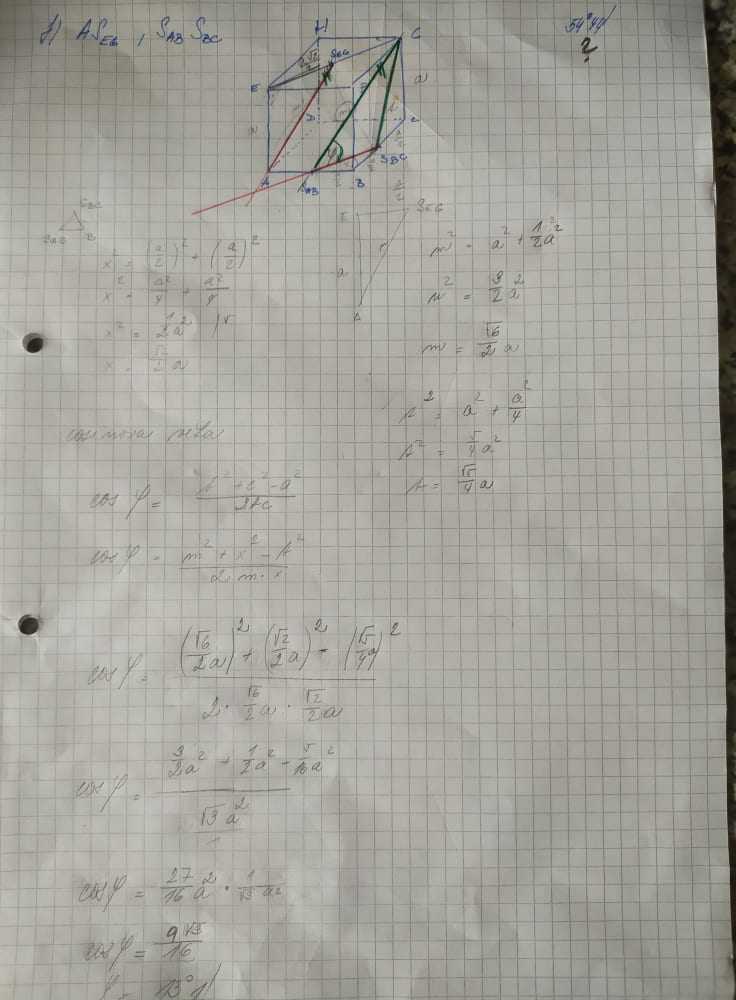 f) AS_EG , S_AB S_BC
54°44'
?
H
G
S_EG
E
F
a
a
D
C
φ
S_BC
A
S_AB
B
S_BC
S_AB B
x² = (a/2)² + (a/2)²
x² = a²/4 + a²/4
x² = 1/2 a² /√
x = √2/2 a
E S_EG
a
A
m² = a² + 1/2 a²
m² = 3/2 a²
m = √6/2 a
t² = a² + a²/4
t² = 5/4 a²
t = √5/4 a
cosinova veta
cos φ = (t² + c² - a²)/(2tc)
cos φ = (m² + x² - t²)/(2 m·x)
cos φ = ((√6/2 a)² + (√2/2 a)² - (√5/4 a)²)/(2 · √6/2 a · √2/2 a)
cos φ = (3/2 a² + 1/2 a² - 5/16 a²)/(√3 a²)
cos φ = 27/16 a² · 1/(√3 a²)
cos φ = 9√3/16
φ = 13° 1'